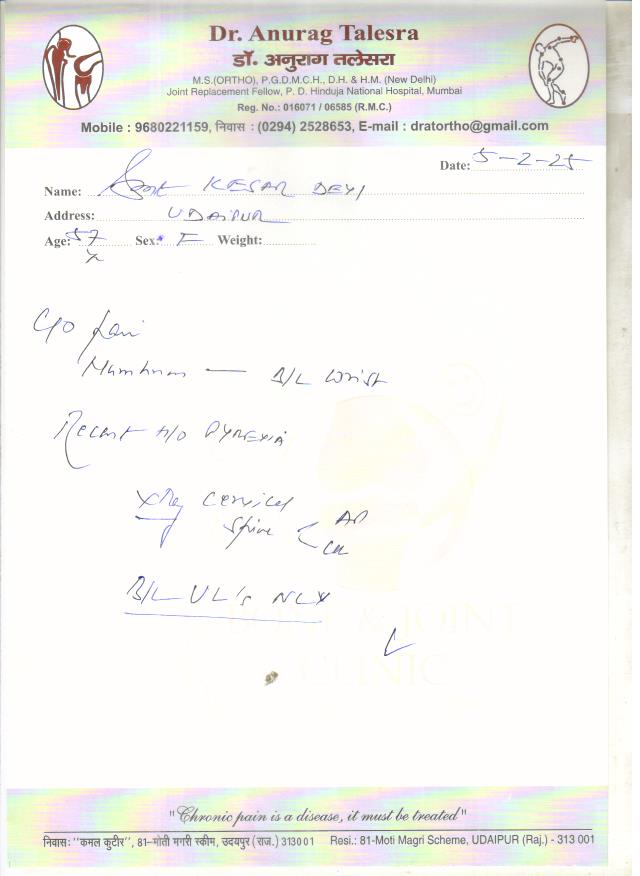 Dr. Anurag Talesra
डॉ. अनुराग तलेसरा
M.S.(ORTHO), P.G.D.M.C.H., D.H. & H.M. (New Delhi)
Joint Replacement Fellow, P. D. Hinduja National Hospital, Mumbai
Reg. No.: 016071 / 06585 (R.M.C.)
Mobile : 9680221159, निवास : (0294) 2528653, E-mail : dratortho@gmail.com
Date: 5-2-25
Name: KESAR DEVI
Address: UDAIPUR
Age: 57 Sex: F Weight:
C/o Pain
Numbness — B/L Wrist
Recent H/O PYREXIA
XRay Cervical
Spine < AP
B/L UL's NCV
BONE & JOINT
CLINIC
"Chronic pain is a disease, it must be treated"
निवास: "कमल कुटीर", 81-मोती मगरी स्कीम, उदयपुर (राज.) 313001 Resi.: 81-Moti Magri Scheme, UDAIPUR (Raj.) - 313 001